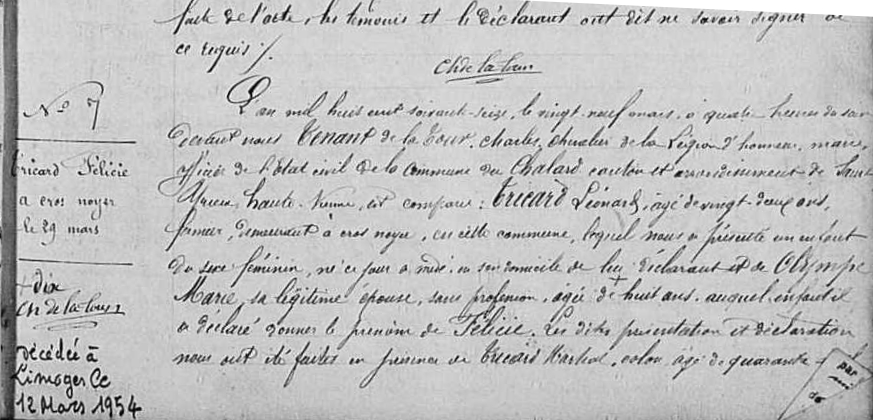 faite de l'acte, les temoins et le déclarant ont dit ne savoir signer de
ce requis ./.
Ch de la tour
N° 7
Tricard Félicie
a cros noyer
le 29 mars
+ dix
Ch de la tour
Décédée à
Limoges
12 Mars 1954
L'an mil huit cent soixante-seize, le vingt-neuf mars, à quatre heures du soir
devant nous Tenant de la Tour, Charles, chevalier de la Légion d'honneur, maire,
officier de l'Etat civil de la commune du Chalard canton et arrondissement de Saint-
Yrieix, haute-Vienne, est comparu : Tricard Léonard, agé de vingt-deux ans,
fermier, demeurant à cros noyer, en cette commune, lequel nous a présenté un enfant
du sexe féminin, né ce jour a midi en son domicile de lui déclarant et de Olympe
Marie, sa légitime épouse, sans profession, agée de + huit ans, auquel enfant il
a déclaré donner le prénom de Félicie. Les dites présentation et déclaration
nous ont été faites en présence de Tricard Martial, colon, agé de quarante